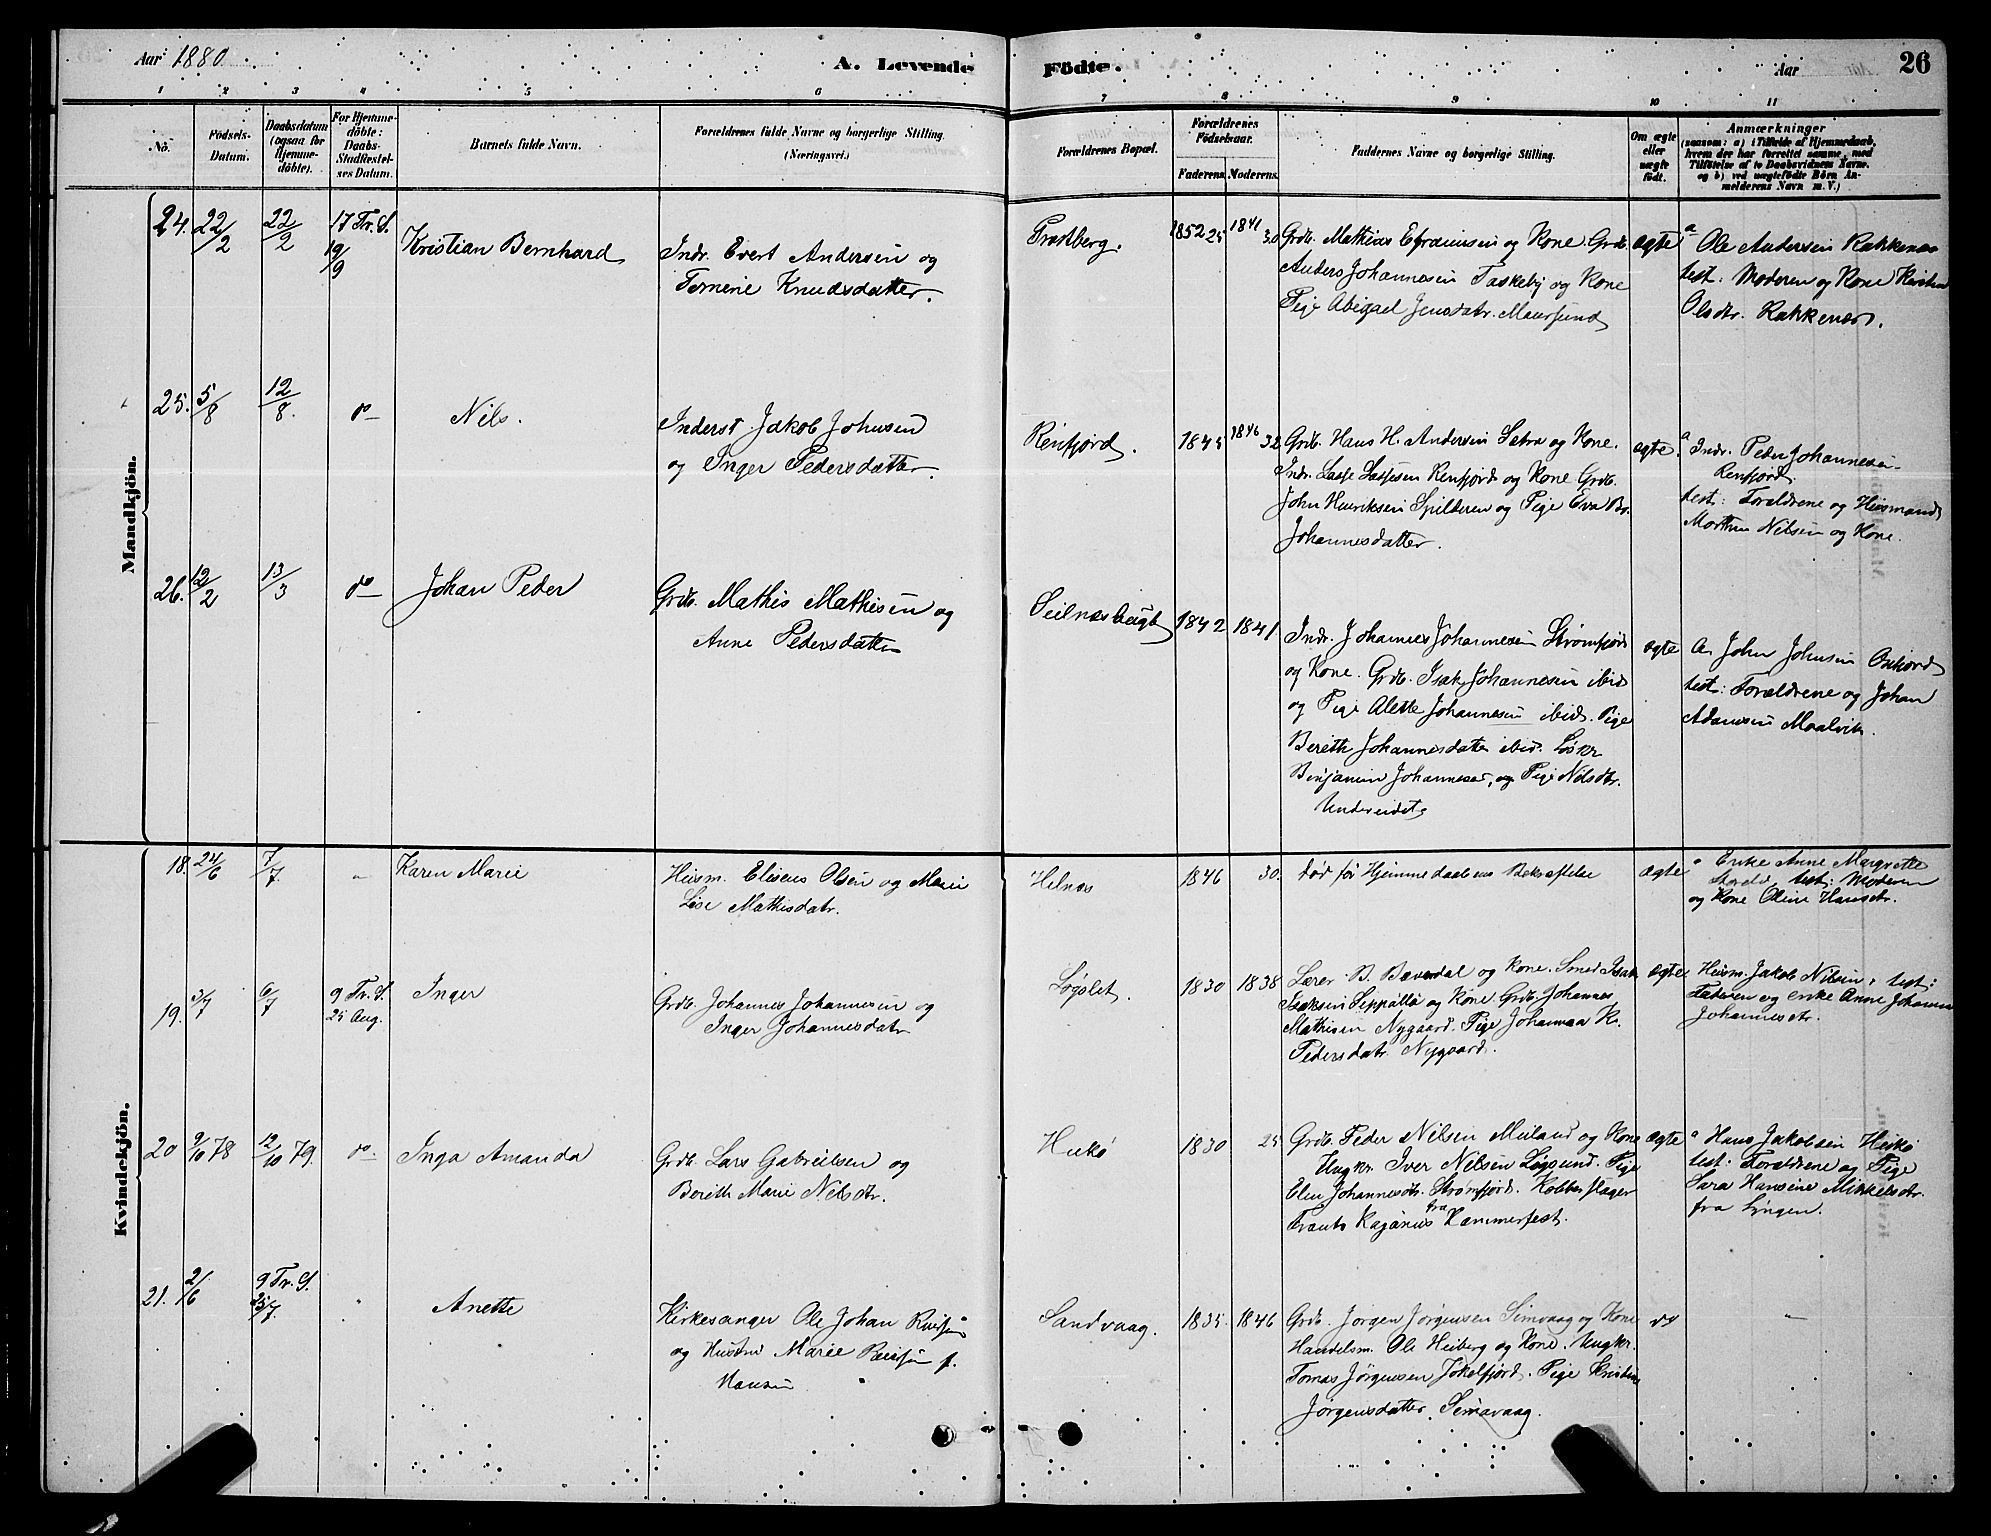 Aar 1880
A. Levende Födte.
Aar
26
1 2 3 4 5 6 7 8 9 10 11
No.
Födsels-Datum.
Daabsdatum (ogsaa for Hjemme-döbte).
For Hjemme-döbte: Daabs-Stadfæstel-ses Datum.
Barnets fulde Navn.
Forældrenes fulde Navne og borgerlige Stilling. (Næringsvei.)
Forældrenes Bopæl.
Forældrenes Födselsaar.
Faderens. Moderens.
Faddernes Navne og borgerlige Stilling.
Om ægte eller uægte födt.
Anmærkninger
(saasom: a) i Tilfælde af Hjemmedaab, hvem der har forrettet samme, med Tilföielse af to Daabsvidners Navne. og b) ved uægtefödte Börn An-melderens Navn m. V.)
Mandkjön.
24. 22/2 22/2 17 Tr. S. 19/9 Kristian Bernhard
Indr. Evert Andersen og
Tomine Knudsdatter.
1852 25 1841 30
Grdb. Mathias Efraimsen og Kone. Grdb.
Anders Johannesen Taskeby og Kone
Pige Abigael Jensdatr. Maursund
ægte
a Ole Andersen Rakkenæs
test: Moderen og Kone Kirsten
Olsdtr. Rakkenæs.
25. 5/8 12/8. do Nils.
Inderst Jakob Johnsen
og Inger Pedersdatter.
Renfjord. 1845 1846 32
Grdb. Hans H. Andersen Setra og Kone.
Indr. Lasse Lassesen Renfjord og Kone Grdb.
John Henriksen Spilderen og Pige Eva Br.
Johannesdatter.
ægte.
a Indr. Peder Johannesen
Renfjord.
test: Forældrene og Huusmand
Morthen Nilsen og Kone.
26. 12/2 13/3 do Johan Peder
Grdb. Mathis Mathisen og
Anne Pedersdatter
Seilnæsbugt 1842 1841
Indr. Johannes Johannesen Strømfjord
og Kone. Grdb. Isak Johannesen ibid
og Pige Alette Johannesen ibid. Pige
Bereth Johannesdatter ibid. Løskr
Benjamin Johannesen, og Pige Nilsdtr.
Undereidet
ægte
a. John Johnsen Oxfjord
test: Forældrene og Johan
Adamsen Maalvik.
Kvindekjön.
18. 24/6 7/7. " Karen Marie
Huusm. Eliseus Olsen og Marie
Lise Mathisdatr.
Helnæs 1846 30.
død før Hjemmedaabens Bekræftelse
ægte
a Enke Anne Margrethe
test: Moderen
og Kone Oline Hansdtr.
19. 3/7 6/7 9 Tr. S. 25 Aug. Inger
Grdb. Johannes Johannesen og
Inger Johannesdatr.
Løgslet. 1830 1838
Lærer B. Bæverdal og Kone. Smed Isak
Isaksen Seppälla og Kone Grdb. Johannes
Mathisen Nygaard. Pige Johanna K.
Pedersdatr. Nygaard.
ægte
Huusm. Jakob Nilsen, test:
Faderen og enke Anne Johanna
Johannesdtr.
20 9/10 78 12/10 79. do Inga Amanda
Grdb. Lars Gabrielsen og
Bereth Marie Nilsdtr.
Hukø 1830 25
Grdb. Peder Nilsen Meiland og Kone
Ungkr. Iver Nilsen Løgsund. Pige
Elen Johannesdtr. Strømfjord. Kobberslager
Frants Kaganus fra Hammerfest.
ægte
a Hans Jakobsen Hukø
test: Forældrene og Pige
Sara Hansine Mikkelsdtr.
fra Lyngen.
21. 2/6 9 Tr. S. 25/7. " Anette
Kirkesanger Ole Johan
og Hustru Marie f.
Hansen
Sandvaag. 1835 1846
Grdb. Jørgen Jørgensen Simavaag og Kone
Handelsm. Ole Heiberg og Kone. Ungkr.
Tomas Jørgensen Jøkelfjord. Pige Kristine
Jørgensdatter Simavaag.
do
"